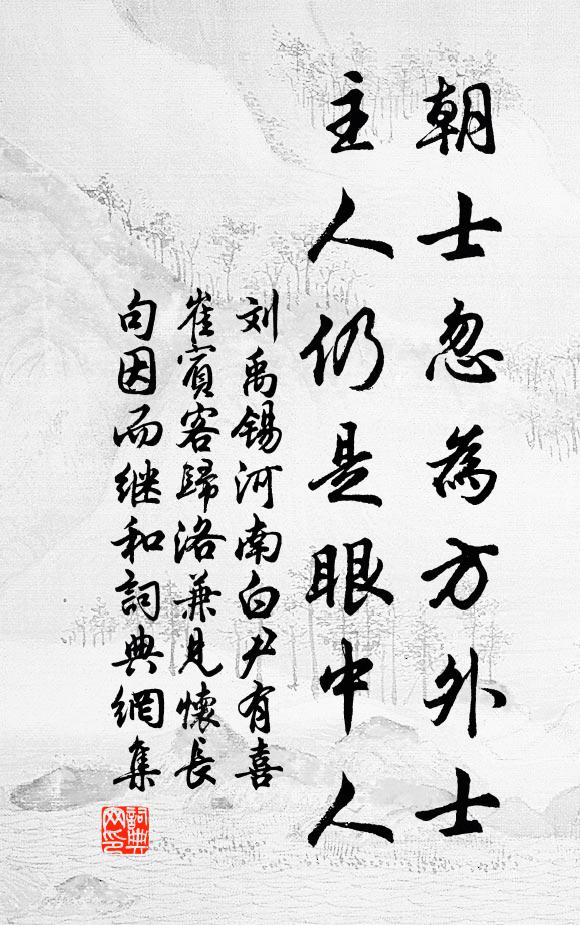 朝士忽為方外士
主人仍是眼中人
刘禹锡河南白尹有喜
崔賓客歸洛兼見懷長
句因而继和詞典網集
詞典网印